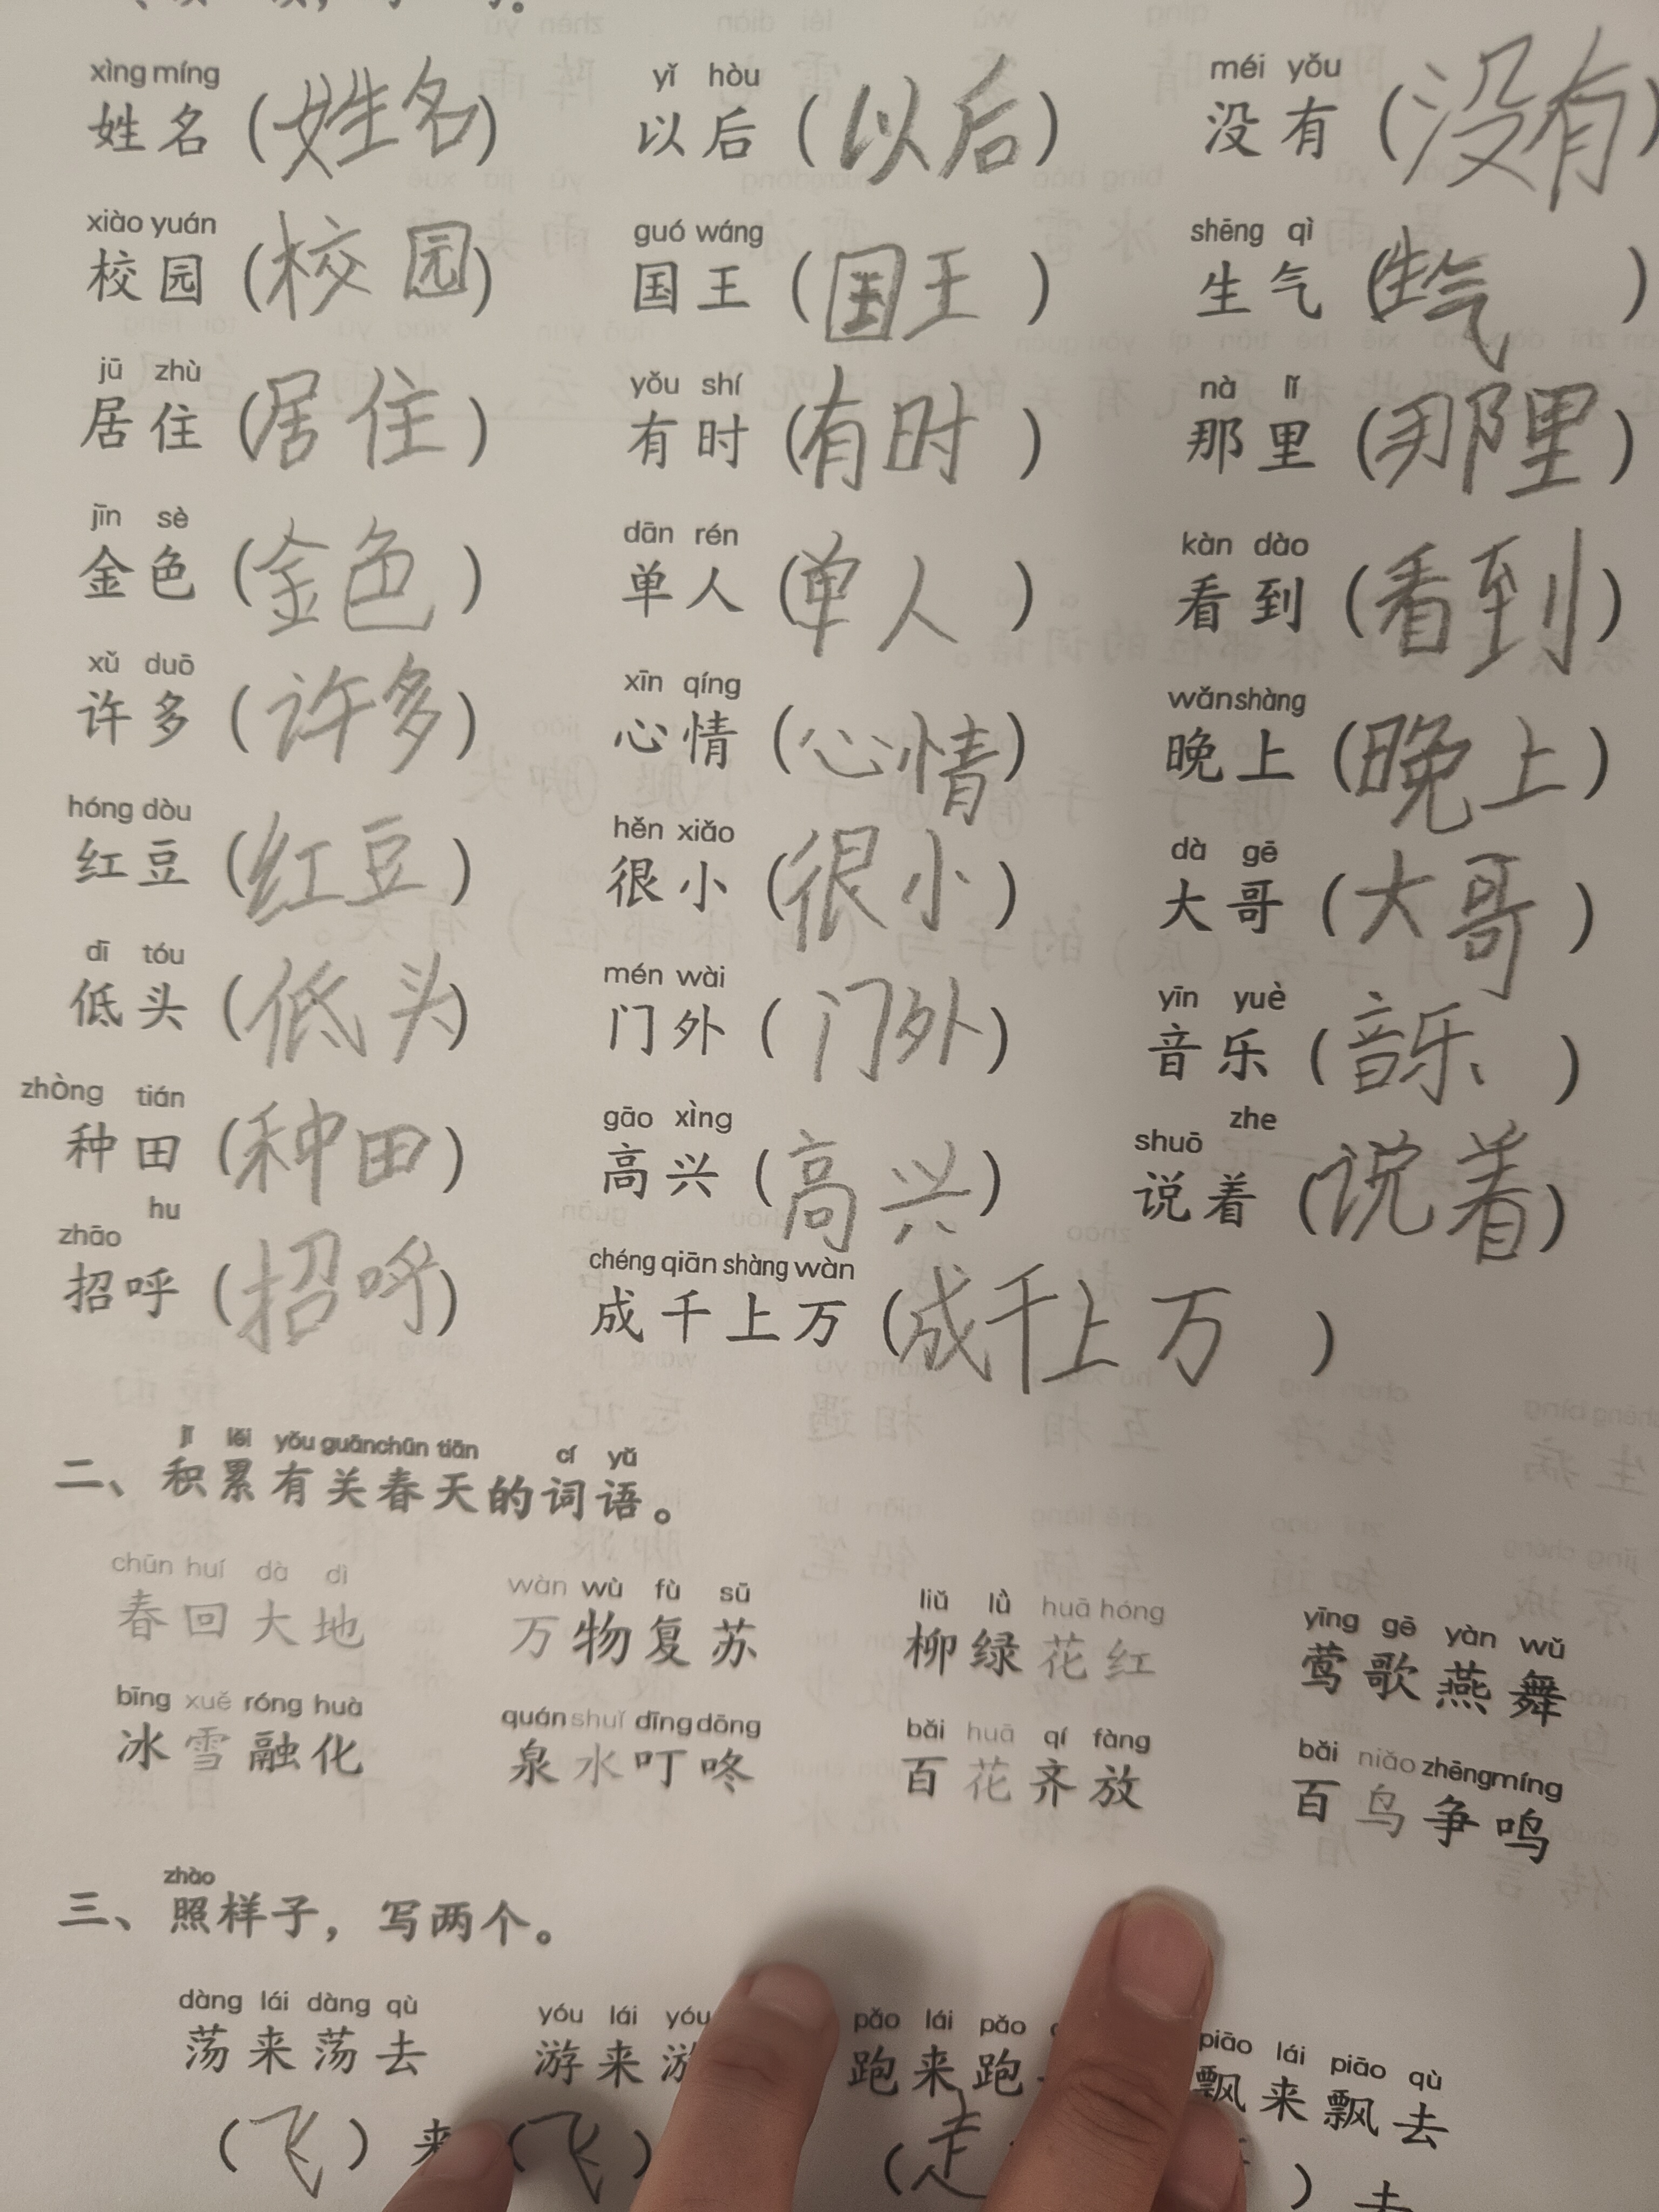 xìng míng yǐ hòu méi yǒu
姓名（姓名） 以后（以后） 没有（没有）
xiào yuán guó wáng shēng qì
校园（校园） 国王（国王） 生气（生气）
jū zhù yǒu shí nà lǐ
居住（居住） 有时（有时） 那里（那里）
jīn sè dān rén kàn dào
金色（金色） 单人（单人） 看到（看到）
xǔ duō xīn qíng wǎn shàng
许多（许多） 心情（心情） 晚上（晚上）
hóng dòu hěn xiǎo dà gē
红豆（红豆） 很小（很小） 大哥（大哥）
dī tóu mén wài yīn yuè
低头（低头） 门外（门外） 音乐（音乐）
zhòng tián gāo xìng shuō zhe
种田（种田） 高兴（高兴） 说着（说着）
zhāo hu chéng qiān shàng wàn
招呼（招呼） 成千上万（成千上万）
jī lěi yǒu guān chūn tiān cí yǔ
二、积累有关春天的词语。
chūn huí dà dì wàn wù fù sū liǔ lǜ huā hóng yīng gē yàn wǔ
春回大地 万物复苏 柳绿花红 莺歌燕舞
bīng xuě róng huà quán shuǐ dīng dōng bǎi huā qí fàng bǎi niǎo zhēng míng
冰雪融化 泉水叮咚 百花齐放 百鸟争鸣
zhào
三、照样子，写两个。
dàng lái dàng qù yóu lái yóu pǎo lái pǎo piāo lái piāo qù
荡来荡去 游来游 跑来跑 飘来飘去
（飞）来（飞） （走 ）去